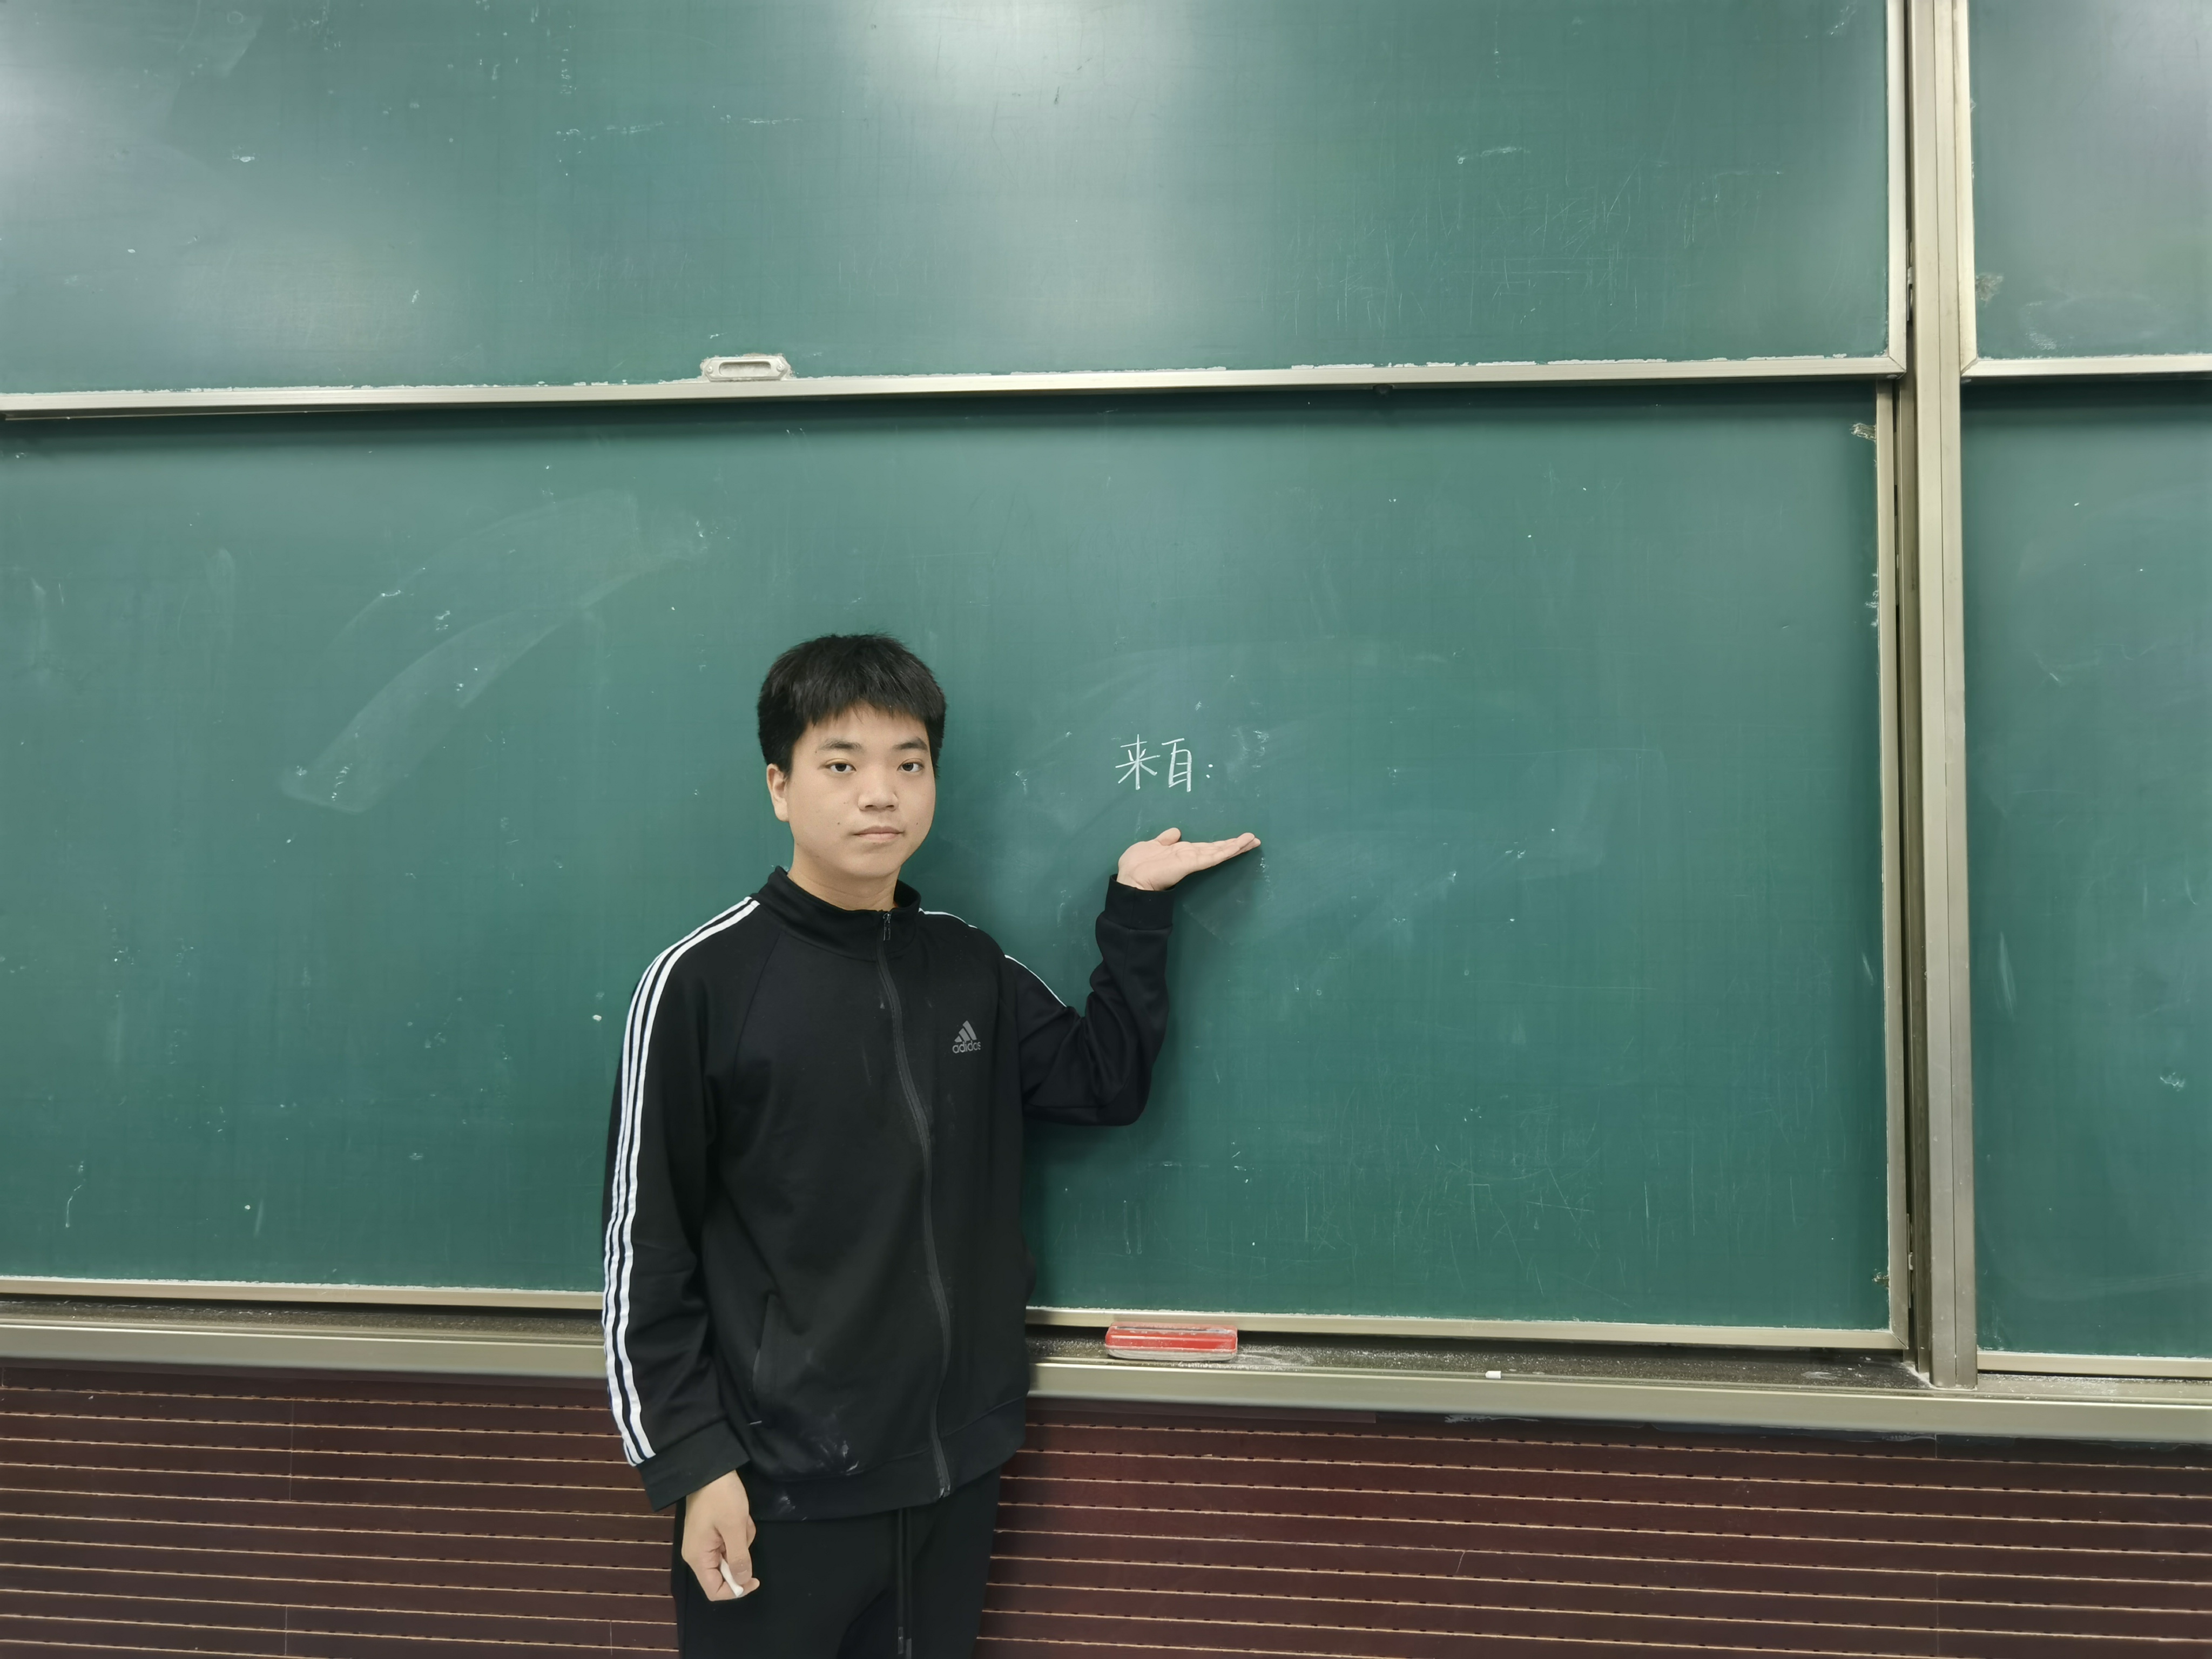 来自:
adidas